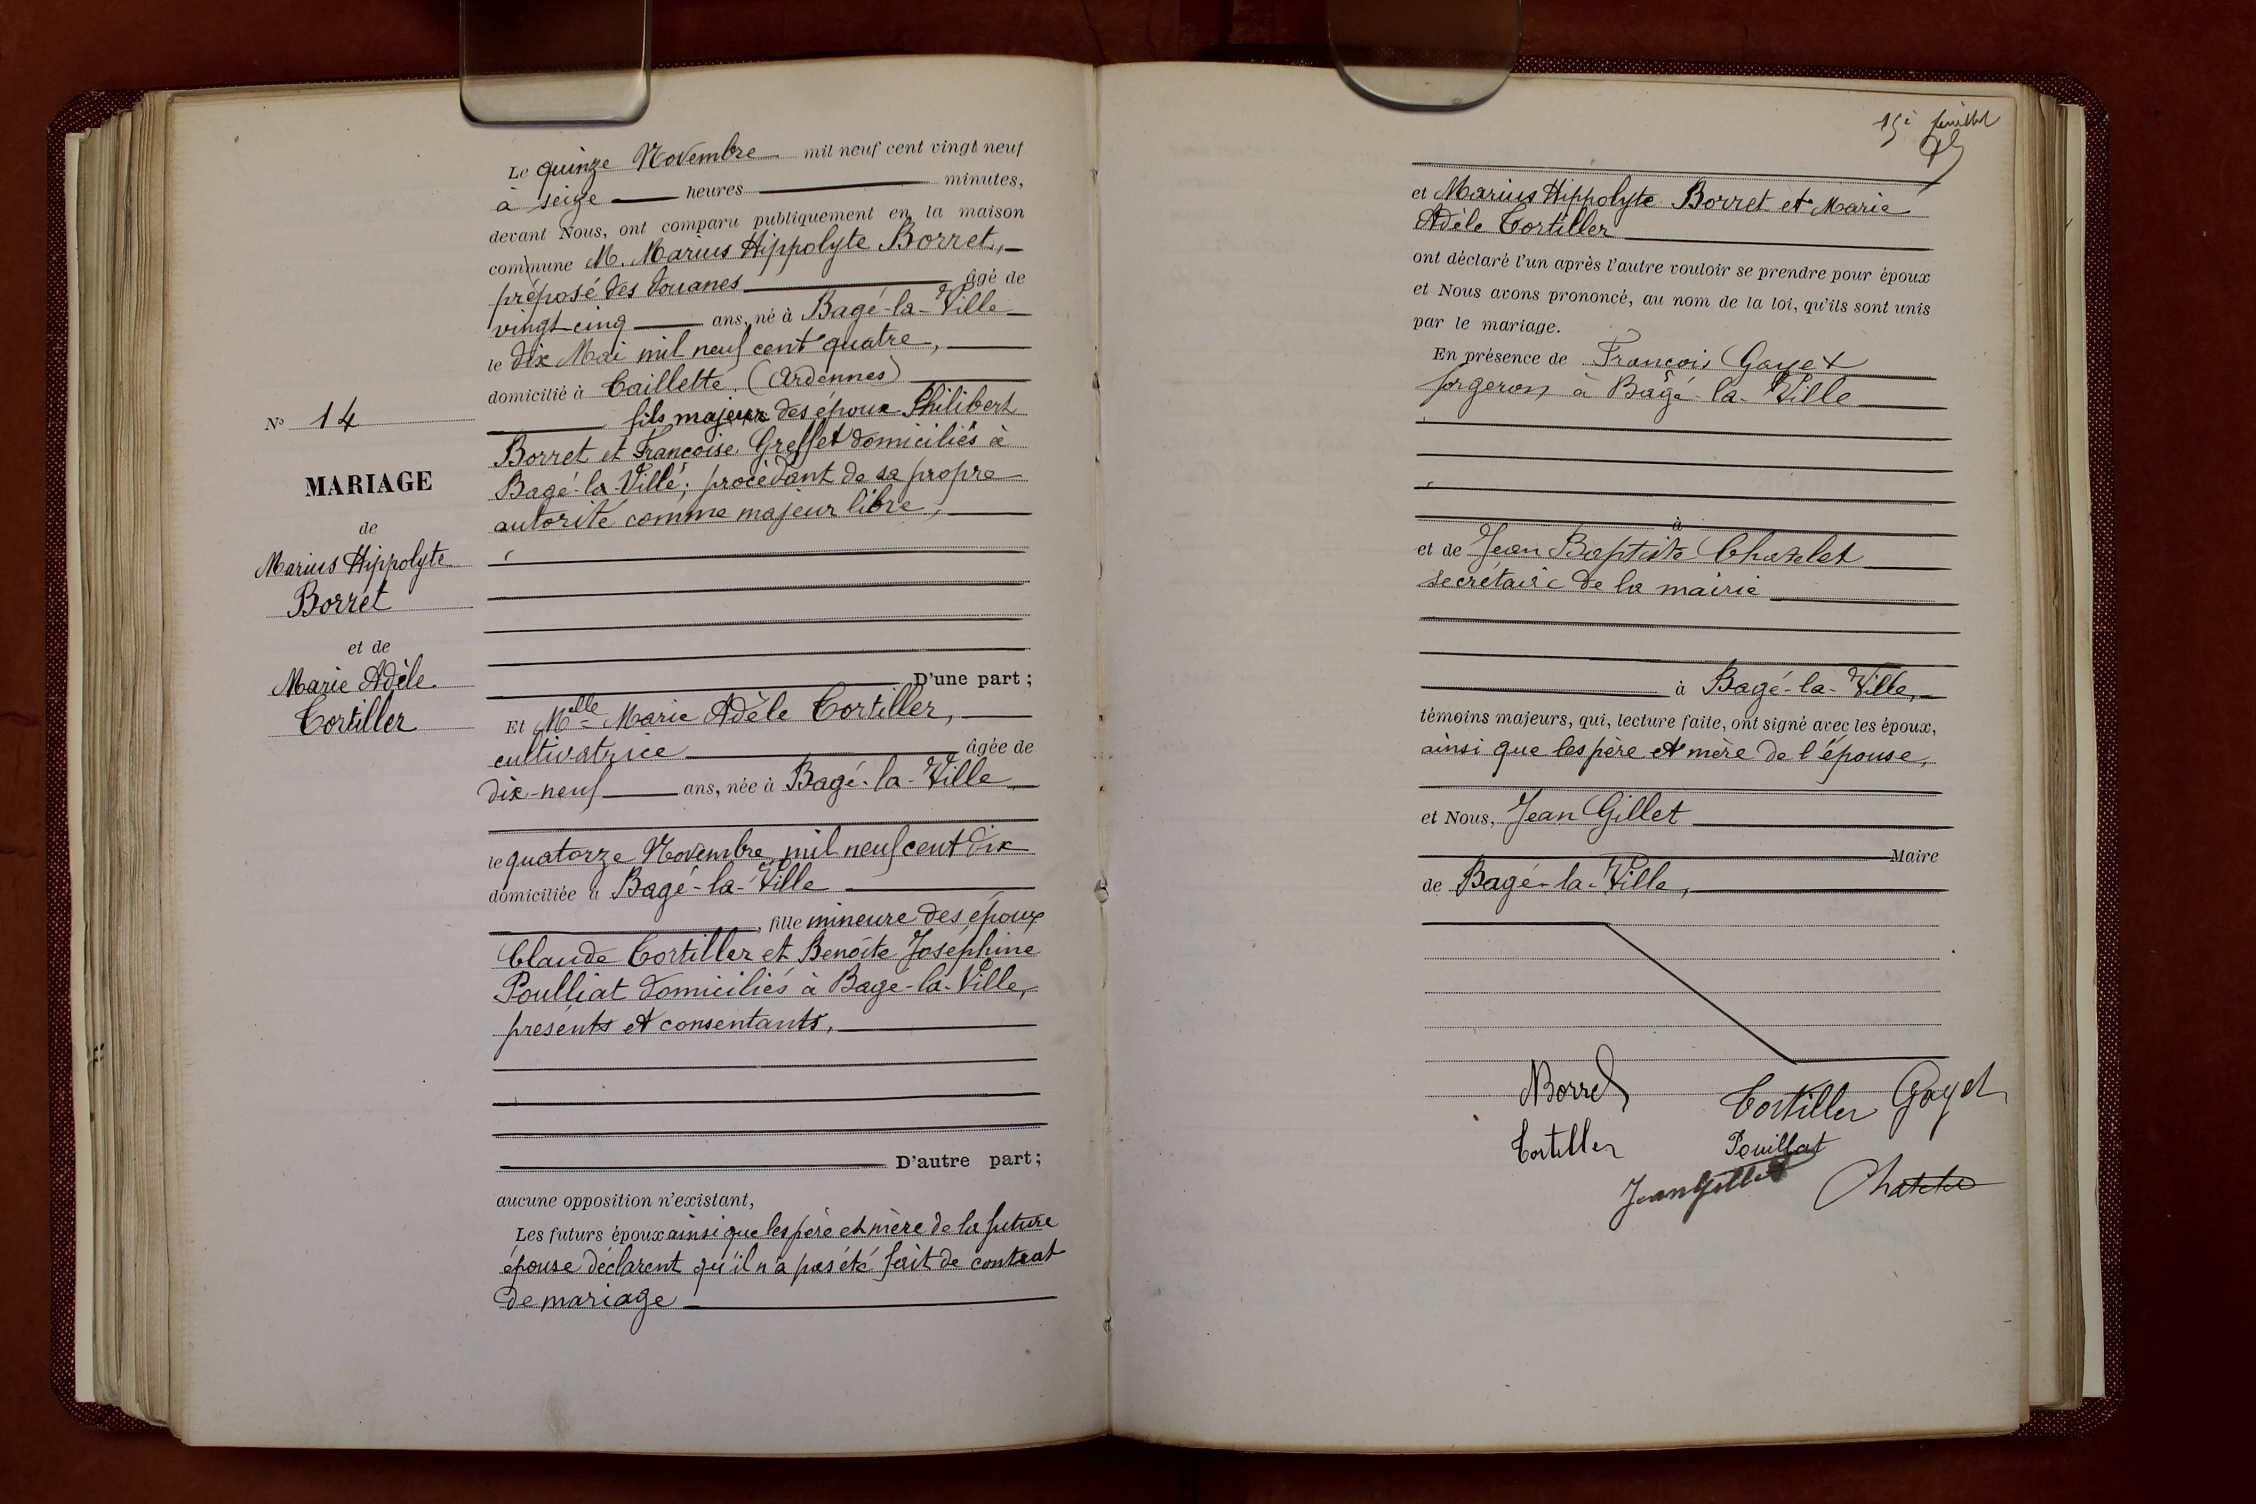 Le quinze Novembre mil neuf cent vingt neuf
à seize heures minutes,
devant Nous, ont comparu publiquement en la maison
commune M. Marius Hippolyte Borret,
préposé des douanes âgé de
vingt-cinq ans, né à Bagé-la-Ville
le dix Mai mil neuf cent quatre,
domicilié à Taillette (Ardennes)
fils majeur des époux Philibert
Borret et Françoise Greffet domiciliés à
Bagé-la Ville; procédant de sa propre
autorité comme majeur libre,
D'une part;
Et Melle Marie Adèle Tortiller,
cultivatrice âgée de
dix-neuf ans, née à Bagé-la-Ville
le quatorze Novembre mil neuf cent dix
domiciliée à Bagé-la-Ville
, fille mineure des époux
Claude Tortiller et Benoite Joséphine
Poulliat domiciliés à Bagé-la-Ville,
présents et consentants,
D'autre part;
aucune opposition n'existant,
Les futurs époux ainsi que les père et mère de la future
épouse déclarent qu'il n'a pas été fait de contrat
de mariage
No 14
MARIAGE
de
Marius Hippolyte
Borret
et de
Marie Adèle
Tortiller
15è feuillet
et Marius Hippolyte Borret et Marie
Adèle Tortiller
ont déclaré l'un après l'autre vouloir se prendre pour époux
et Nous avons prononcé, au nom de la loi, qu'ils sont unis
par le mariage.
En présence de François Gayet
forgeron à Bagé-la-Ville
à
et de Jean Baptiste Chatelet
secrétaire de la mairie
à Bagé-la-Ville,
témoins majeurs, qui, lecture faite, ont signé avec les époux,
ainsi que les père et mère de l'épouse,
et Nous, Jean Gillet
Maire
de Bagé-la-Ville,
MBorret
Tortiller Gayet
Tortiller
Pouillat
Jean Gillet